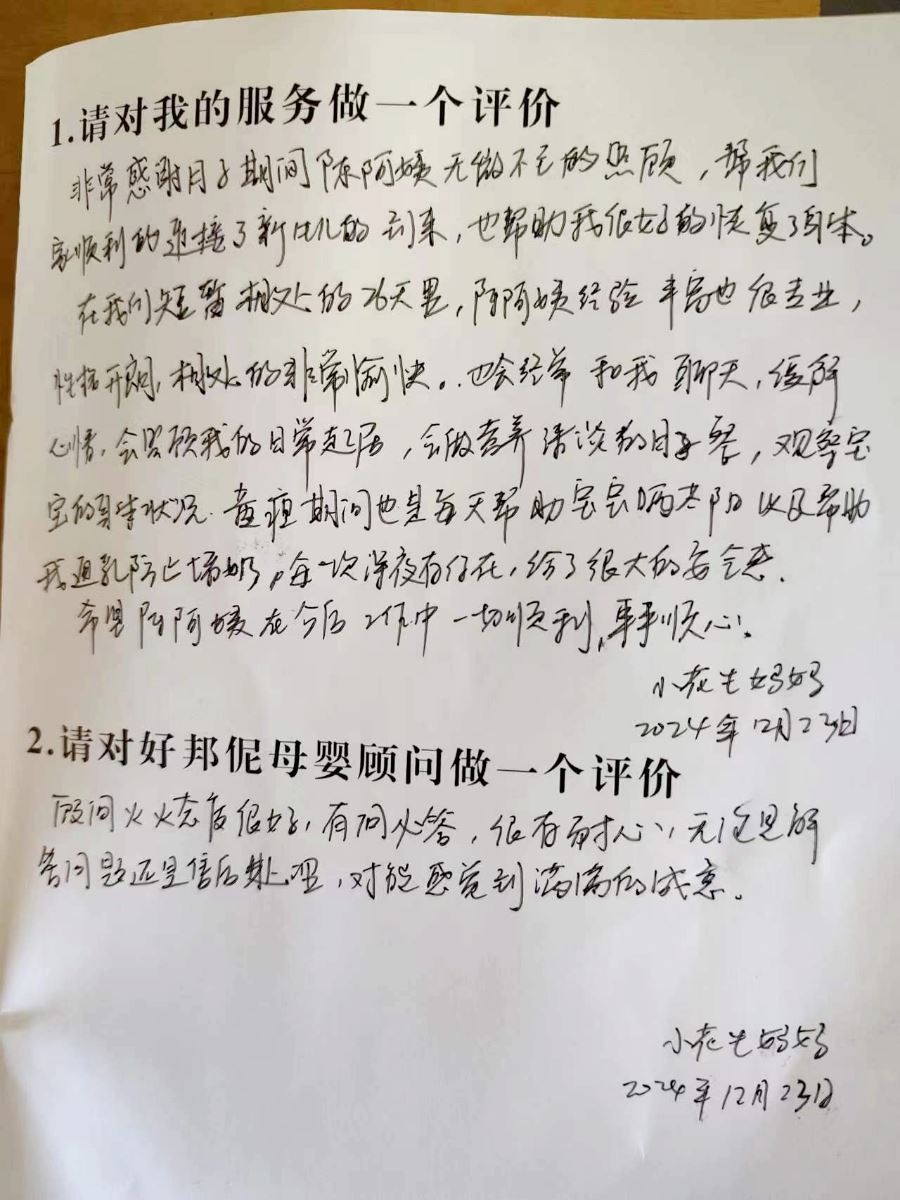 1.请对我的服务做一个评价
非常感谢月子期间陈阿姨无微不至的照顾，帮我们
家顺利的迎接了新生儿的到来，也帮助我很好的恢复了身体。
在我们短暂相处的26天里，陈阿姨经验丰富也很专业，
性格开朗，相处的非常愉快。也会经常和我聊天，缓解
心情，会照顾我的日常起居，会做营养清淡的月子餐，观察宝
宝的身体状况.黄疸期间也是每天帮助宝宝晒太阳以及帮助
我通乳防止堵奶，每一次深夜有你在，给了很大的安全感.
希望陈阿姨在今后工作中一切顺利，事事顺心.
小花生妈妈
2024年12月23日
2.请对好邦伲母婴顾问做一个评价
顾问火火态度很好，有问必答，很有耐心，无论是解
答问题还是售后处理，对能感觉到满满的诚意.
小花生妈妈
2024年12月23日